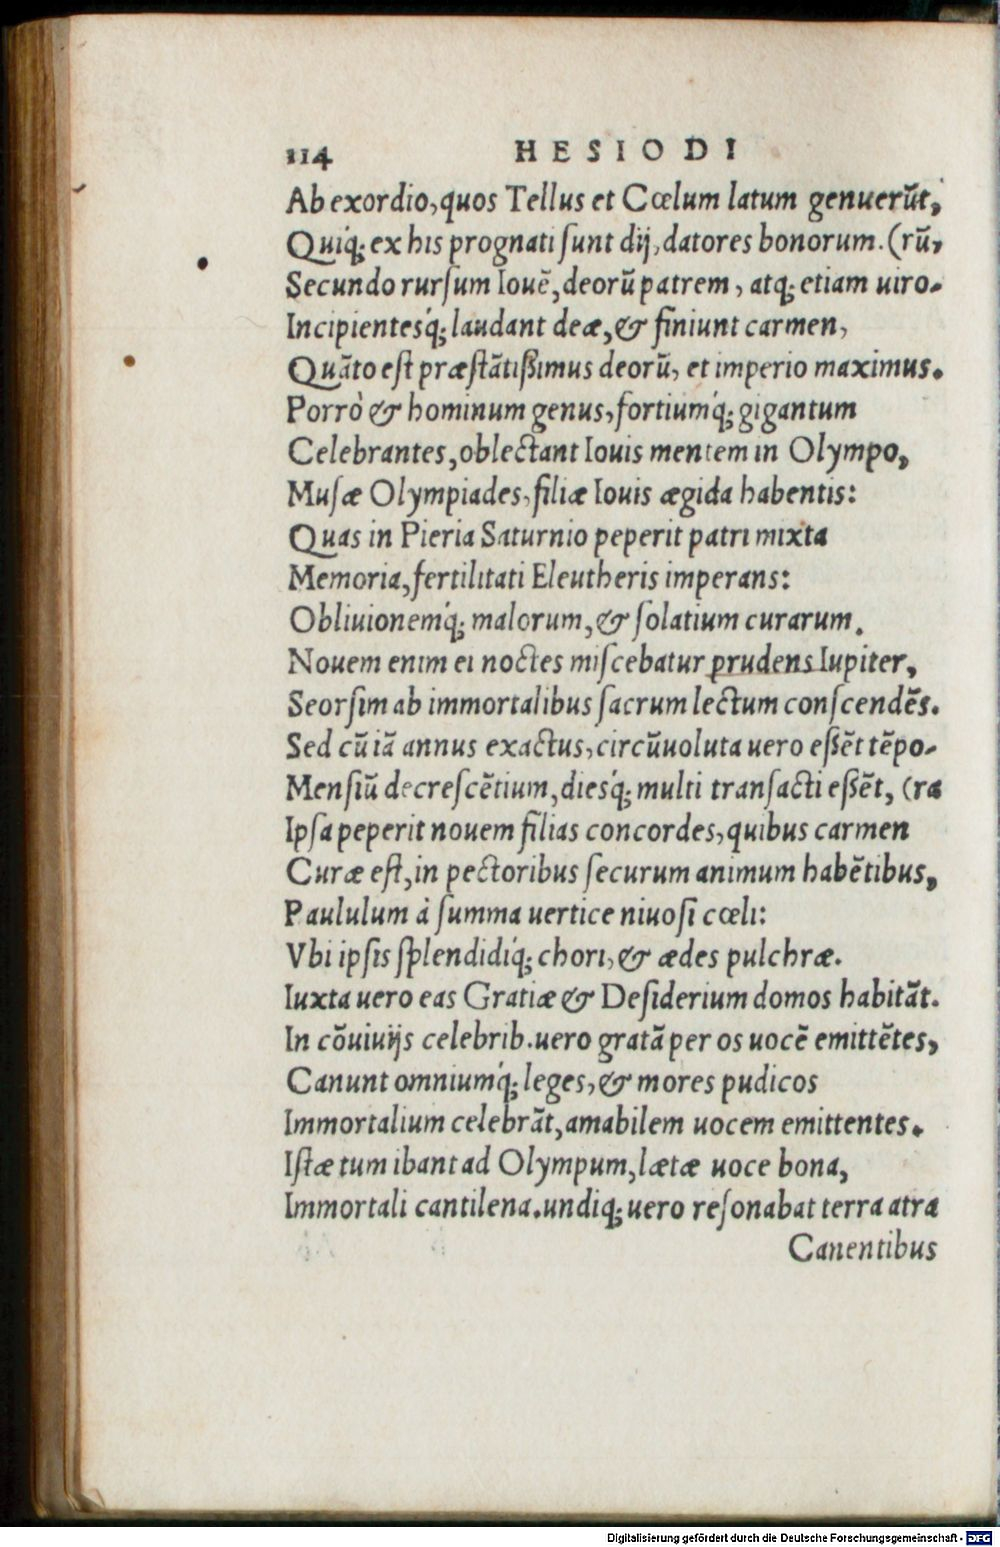 114 HESIODI
Ab exordio, quos Tellus et Cœlum latum genuerũt,
Quiq́; ex his prognati ſunt dij, datores bonorum. (rũ,
Secundo rurſum Iouẽ, deorũ patrem, atq; etiam uiro-
Incipientesq́; laudant deæ, & finiunt carmen,
Quãto eſt præſtãtißimus deorũ, et imperio maximus.
Porrò & hominum genus, fortiumq́; gigantum
Celebrantes, oblectant Iouis mentem in Olympo,
Muſæ Olympiades, filiæ Iouis ægida habentis:
Quas in Pieria Saturnio peperit patri mixta
Memoria, fertilitati Eleutheris imperans:
Obliuionemq́; malorum, & ſolatium curarum.
Nouem enim ei noctes miſcebatur prudens Iupiter,
Seorſim ab immortalibus ſacrum lectum conſcendẽs.
Sed cũ iã annus exactus, circũuoluta uero eßẽt tẽpo-
Menſiũ decreſcẽtium, diesq́; multi tranſacti eßẽt, (ra
Ipſa peperit nouem filias concordes, quibus carmen
Curæ eſt, in pectoribus ſecurum animum habẽtibus,
Paululum à ſumma uertice niuoſi cœli:
Vbi ipſis ſplendidiq́; chori, & ædes pulchræ.
Iuxta uero eas Gratiæ & Deſiderium domos habitãt.
In cõuiuijs celebrib. uero gratã per os uocẽ emittẽtes,
Canunt omniumq́; leges, & mores pudicos
Immortalium celebrãt, amabilem uocem emittentes.
Iſtæ tum ibant ad Olympum, lætæ uoce bona,
Immortali cantilena. undiq; uero reſonabat terra atra
Canentibus
Digitalisierung gefördert durch die Deutsche Forschungsgemeinschaft - DFG